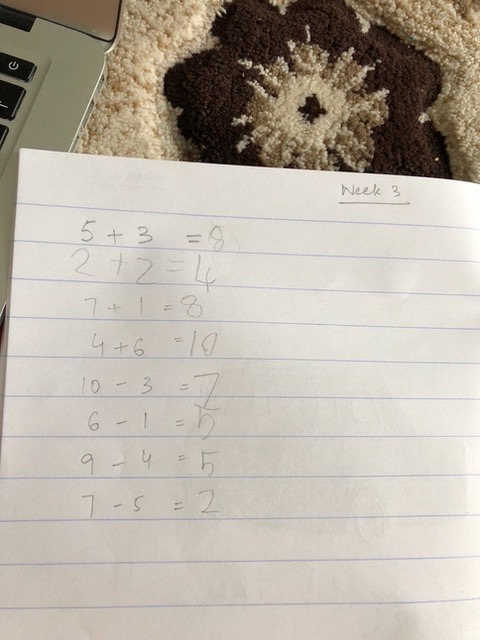 Week 3
5 + 3 = 8
2 + 2 = 4
7 + 1 = 8
4 + 6 = 10
10 - 3 = 7
6 - 1 = 5
9 - 4 = 5
7 - 5 = 2